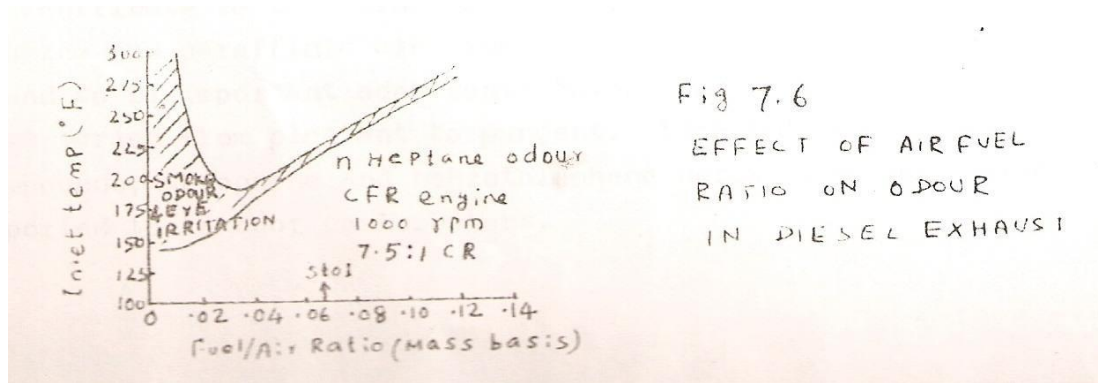 300
275
250
225
200
175
150
125
100
Inlet temp (°F)
SMOKE
ODOUR
& EYE
IRRITATION
n Heptane odour
CFR engine
1000 rpm
7.5:1 CR
Stoi
0 .02 .04 .06 .08 .10 .12 .14
Fuel/Air Ratio (Mass basis)
Fig 7.6
EFFECT OF AIR FUEL
RATIO ON ODOUR
IN DIESEL EXHAUST